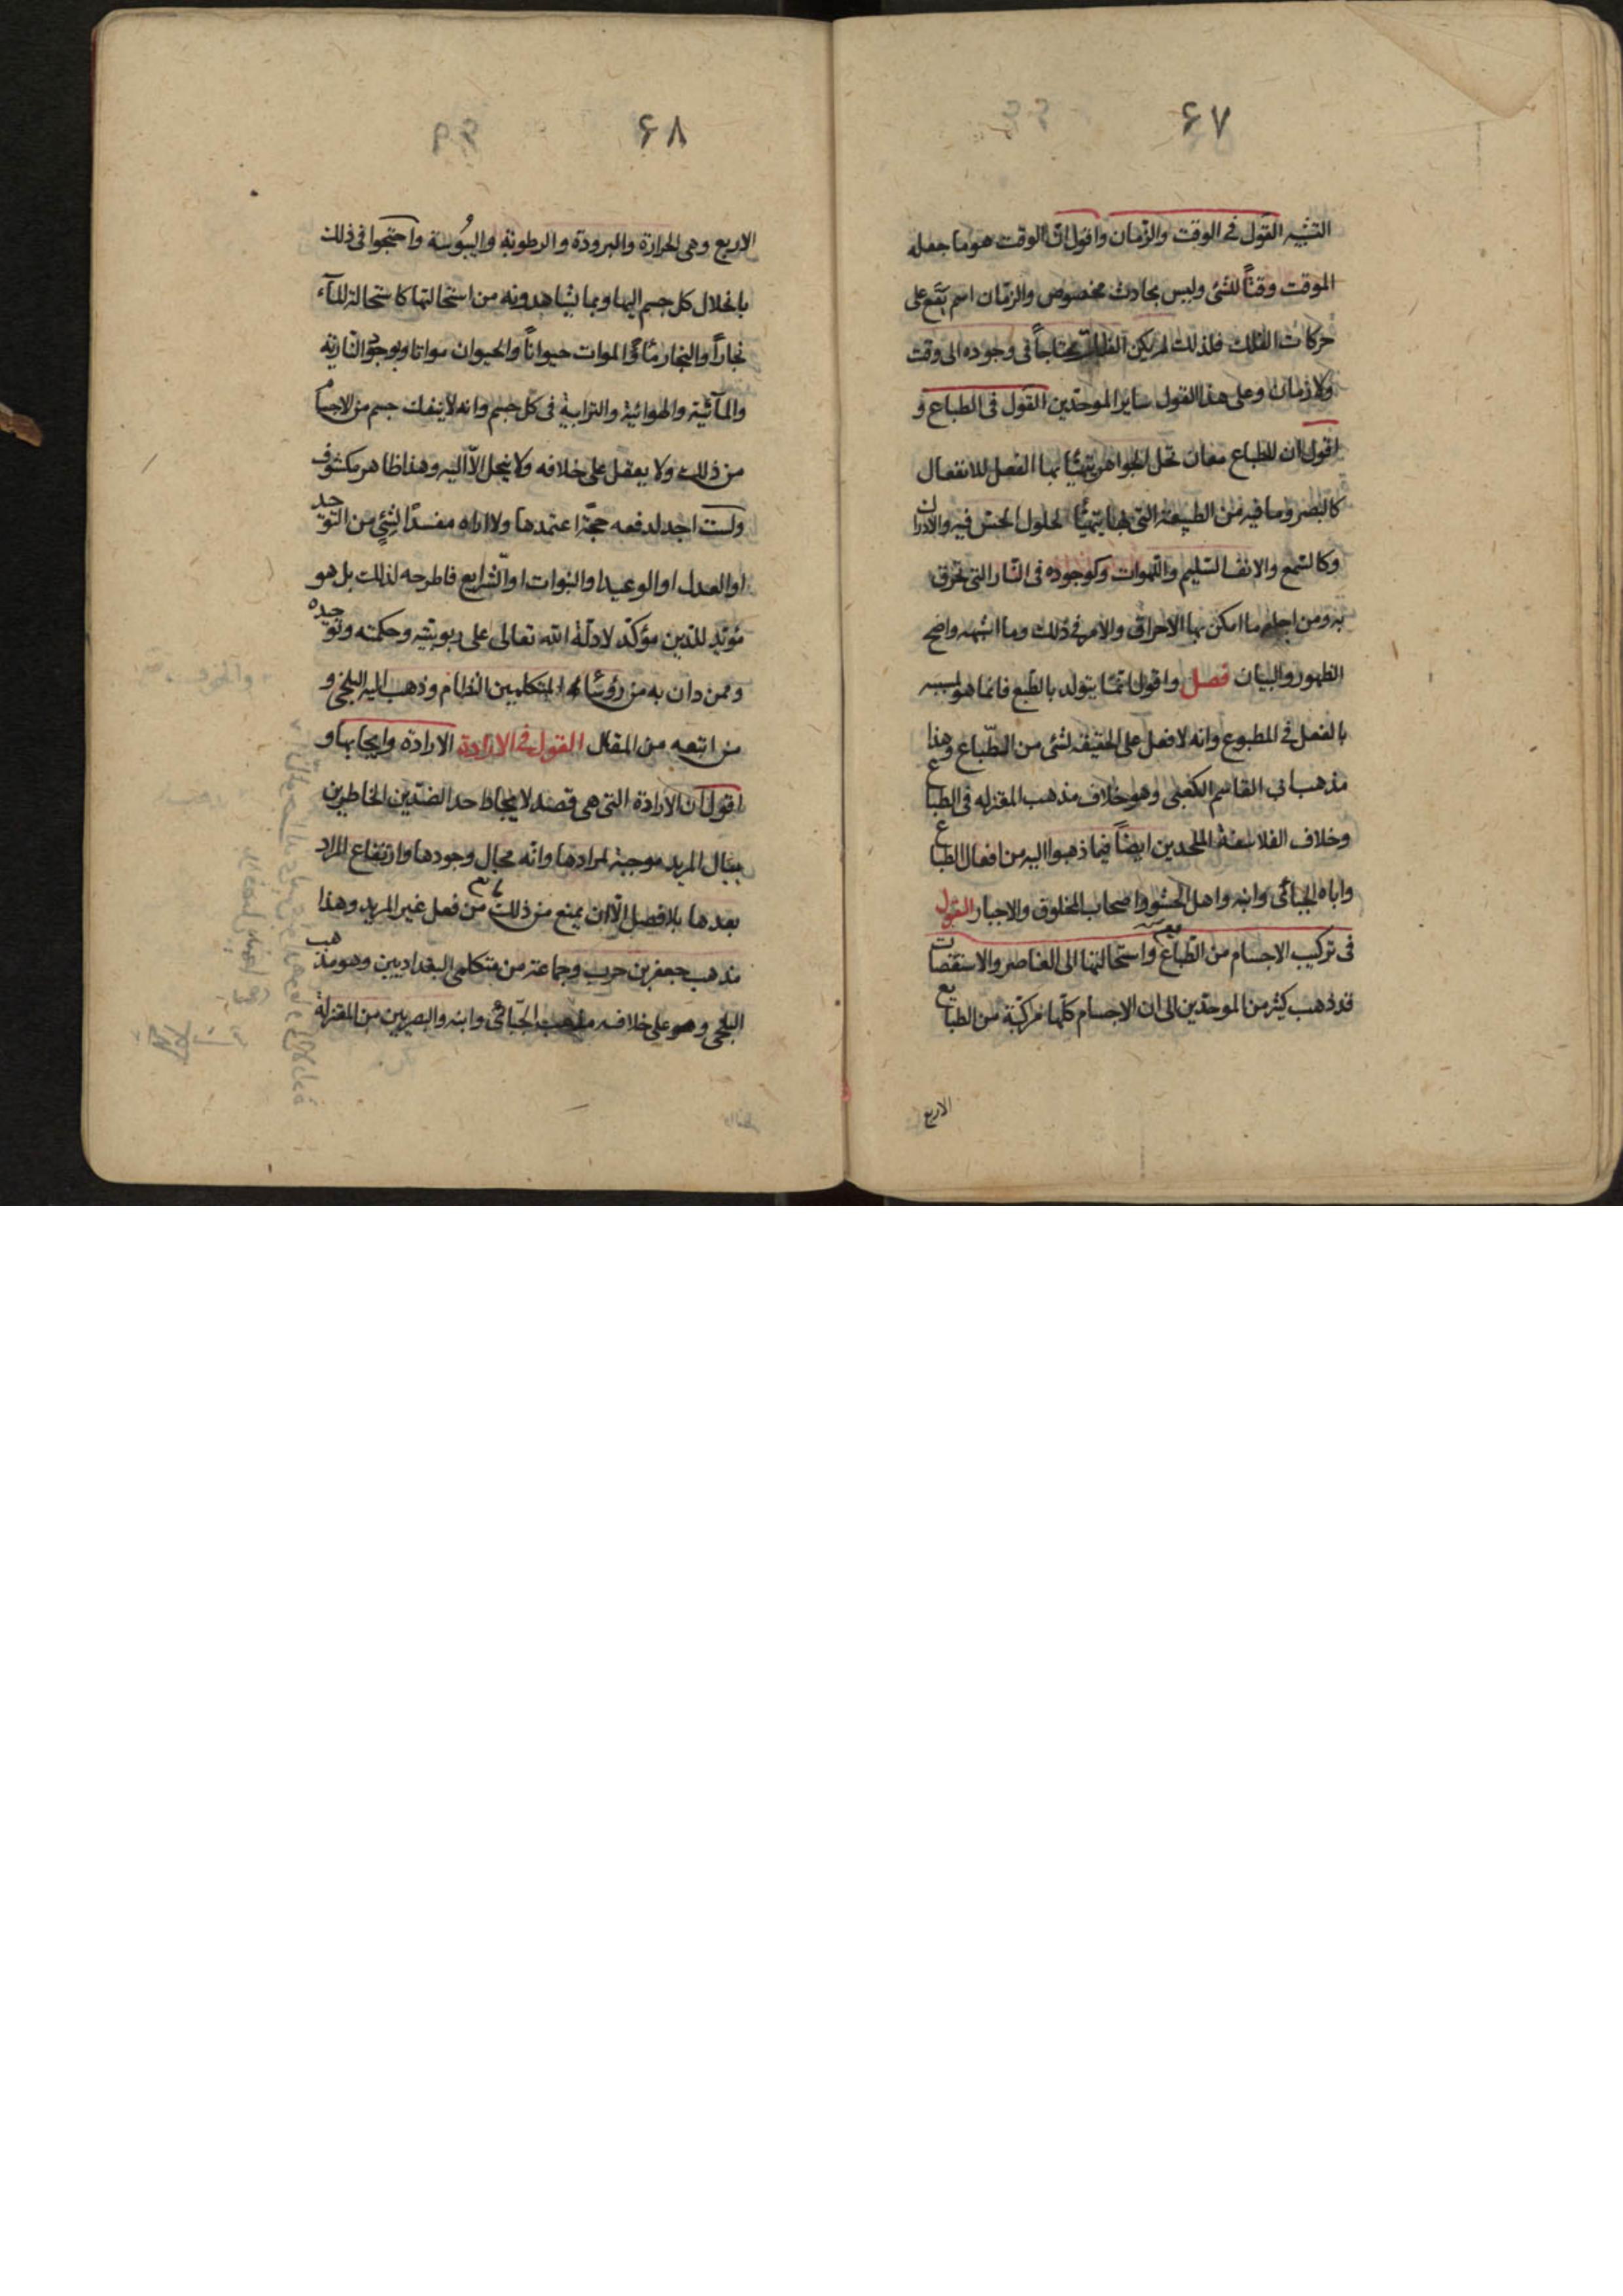 ۶۷
التشبيه القول في الوقت والزمان واقول ان الوقت هو ما جعله
الموقت وقتاً للشئ وليس بحادث مخصوص والزمان اسم يقع على
حركات الفلك فلذلك لم يكن الفلك محتاجاً في وجوده الى وقت
ولا زمان وعلى هذا القول ساير الموحدين القول في الطباع و
اقول ان للطباع معان تحل الجواهر يتهيأ بها الفصل للانفعال
كالبصر وما فيه من الطبيعة التي بها يتهيأ لحلول الحس فيه والادراك
وكالسمع والانف السليم واللهوات وكوجوده في النار التي تحرق
به ومن اجله ما امكن بها الاحراق والامر في ذلك وما اشبهه واضح
الظهور والبيان فصل واقول ان ما يتولد بالطبع فانما هو لمسببه
بالفعل في المطبوع وانه لا فعل على الحقيقه لشئ من الطباع وهذا
مذهب ابي القاسم الكعبي وهو خلاف مذهب المعتزله في الطباع
وخلاف الفلاسفة الملحدين ايضاً فيما ذهبوا اليه من افعال الطباع
واباه الجبائى وابنه واهل الحشو واصحاب المخلوق والاجبار القول
فى تركيب الاجسام من الطباع واستحالتها الى العناصر والاستقصات
قد ذهب كثير من الموحدين الى ان الاجسام كلها مركبة من الطبايع
الاربع
۶۸
الاربع وهي الحرارة والبرودة والرطوبة واليبُوسة واحتجوا في ذلك
بانحلال كل جسم اليها وبما يشاهدونه من استحالتها كاستحالة الماء
بخاراً والبخار ماءً والموات حيواناً والحيوان مواتا وبوجود النارية
والمآئية والهوائية والترابية في كل جسم وانه لا ينفك جسم من الاجسام
من ذلك ولا يعقل على خلافه ولا ينحل الّا اليه وهذا ظاهر مكشوف
ولست اجد لدفعه حجة اعتمدها ولا اراه مفسداً لشئ من التوحيد
او العدل او الوعيد او النبوات او الشرايع فاطرحه لذلك بل هو
مؤيد للدين مؤكد لادلة الله تعالى على ربوبيته وحكمته وتوحيده
وممن دان به من رؤساء المتكلمين النظام وذهب اليه البلخي و
من اتبعه من المقال القول في الارادة الارادة وايجابها و
اقول ان الارادة التي هي قصد لايجاد احد الضدين الخاطرين
ببال المريد موجبة لمرادها وانه محال وجودها وارتفاع المراد
بعدها بلا فصل الّا ان يمنع من ذلك من فعل غير المريد وهذا
مذهب جعفر بن حرب وجماعة من متكلمي البغداديين وهو مذهب
البلخي وهو على خلاف مذهب الجبائى وابنه والبصريين من المعتزلة